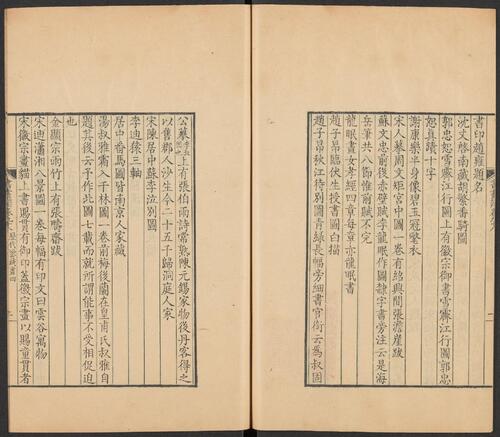 書印趙雍題名
沈文啓南藏胡繁番騎圖
郭忠恕雪霽江行圖上有徽宗御書雪霽江行圖郭忠
恕真蹟十字
謝康樂半身像碧玉冠氅衣
宋人摹周文矩宮中圖一卷有紹興間張澹崖跋
蘇文忠前後赤壁賦李龍眠作圖隸字書旁注云是海
岳筆共八節惟前賦不完
龍眠畫女孝經四章每章亦龍眠書
趙子昂臨伏生授書圖白描
趙子昂秋江待別圖青綠長幅旁細書官銜云為叔固
公摹上有張伯雨詩常熟陳元錫家物後丹客得之
以售郡人沙生今二十五千歸洞庭人家
宋陳居中蘇李泣別圖
李迪猱三軸
居中番馬圖皆南京人家藏
湯叔雅霜入千林圖一卷前梅後蘭在皇甫氏叔雅自
題其後云予作此圖七載而就所謂能事不受相促迫
也
金顯宗雨竹上有張疇齋跋
宋迪瀟湘八景圖一卷每幅有印文曰雲谷寓物
宋徽宗畫貓上書賜貫有御印蓋徽宗畫以賜童貫者